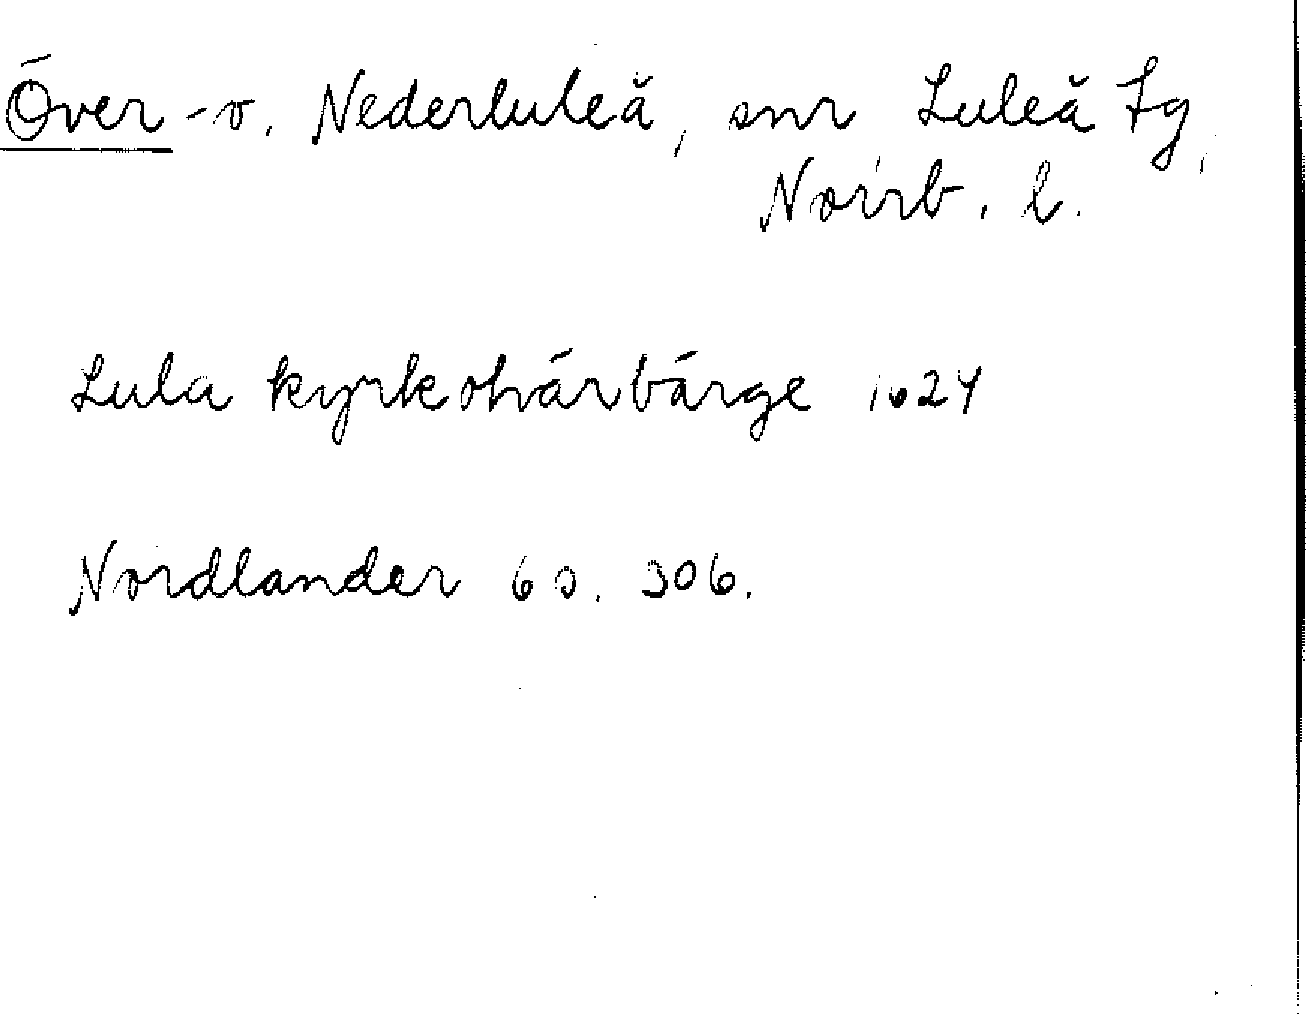 Över- o. Nederluleå, snr Luleå tg,
Norrb. l.
Lula kyrkohärbärge 1624
Nordlander 6 s. 306.